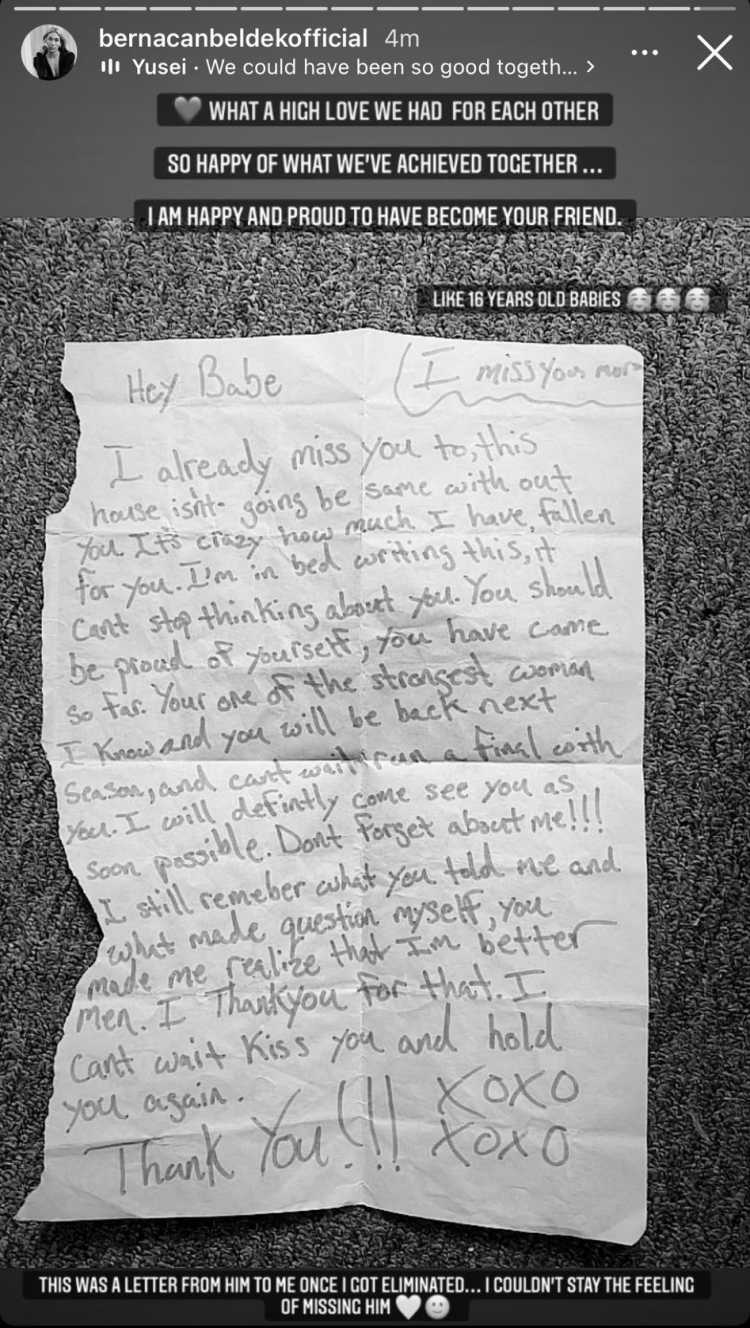 bernacanbeldekofficial 4m
Yusei · We could have been so good togeth... >
🖤 WHAT A HIGH LOVE WE HAD FOR EACH OTHER
SO HAPPY OF WHAT WE'VE ACHIEVED TOGETHER ...
I AM HAPPY AND PROUD TO HAVE BECOME YOUR FRIEND.
LIKE 16 YEARS OLD BABIES 🥰🥰🥰
Hey Babe
(I miss you more
I already miss you to, this
house isnt going be same with out
you. It's crazy how much I have fallen
for you. I'm in bed writing this, it
Cant stop thinking about you. You should
be proud of yourself, you have came
so far. Your one of the strongest woman
I Know and you will be back next
Season, and cant wait run a final with
you. I will defintly come see you as
soon possible. Dont forget about me!!!
I still remeber what you told me and
what made question myself, you
made me realize that Im better
men. I Thankyou for that. I
Cant wait Kiss you and hold
you again.
Thank You!!! XOXO
XOXO
THIS WAS A LETTER FROM HIM TO ME ONCE I GOT ELIMINATED... I COULDN'T STAY THE FEELING
OF MISSING HIM 🤍🙂